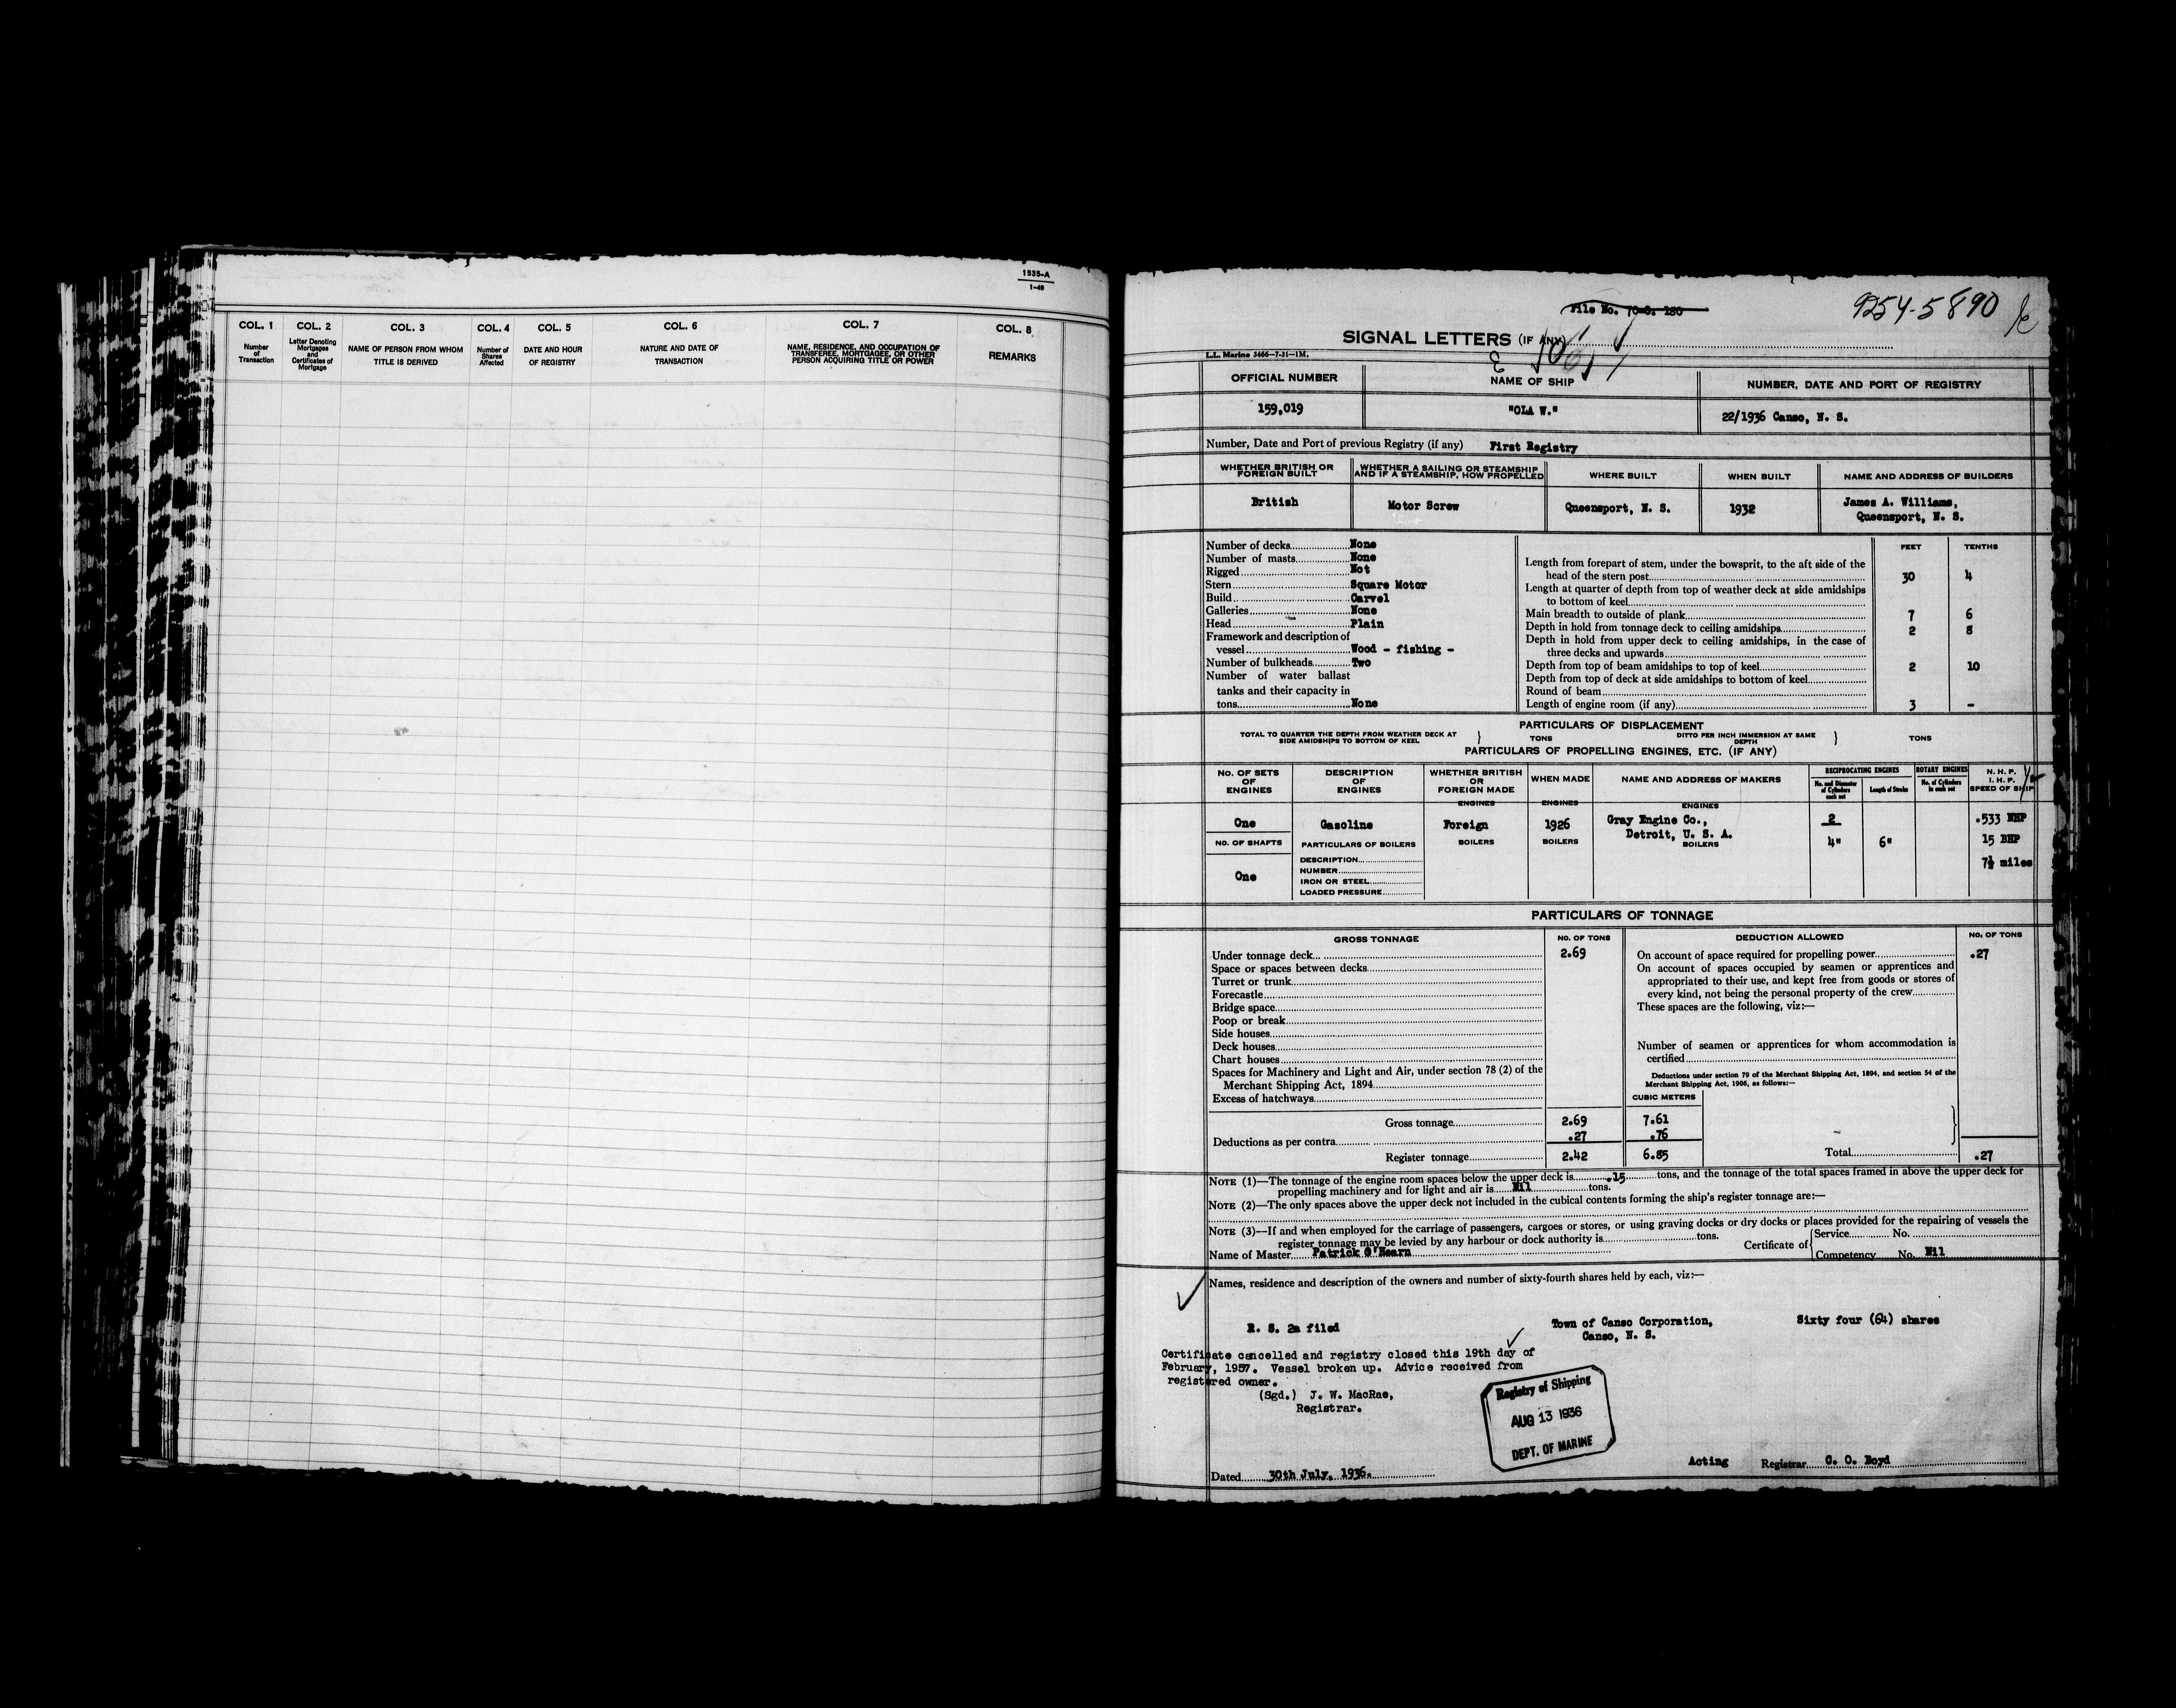 1535-A
1-49
COL. 1
Number
of
Transaction
COL. 2
Letter Denoting
Mortgages
and
Certificates of
Mortgage
COL. 3
NAME OF PERSON FROM WHOM
TITLE IS DERIVED
COL. 4
Number of
Shares
Affected
COL. 5
DATE AND HOUR
OF REGISTRY
COL. 6
NATURE AND DATE OF
TRANSACTION
COL. 7
NAME, RESIDENCE, AND OCCUPATION OF
TRANSFEREE, MORTGAGEE, OR OTHER
PERSON ACQUIRING TITLE OR POWER
COL. 8
REMARKS
File No.
9254-5890
SIGNAL LETTERS (IF ANY)
L.L. Marine 3466—7-31—1M.
OFFICIAL NUMBER
NAME OF SHIP
NUMBER, DATE AND PORT OF REGISTRY
159,019
"OLA W."
22/1936 Canso, N. S.
Number, Date and Port of previous Registry (if any) First Registry
WHETHER BRITISH OR
FOREIGN BUILT
WHETHER A SAILING OR STEAMSHIP
AND IF A STEAMSHIP, HOW PROPELLED
WHERE BUILT
WHEN BUILT
NAME AND ADDRESS OF BUILDERS
British
Motor Screw
Queensport, N. S.
1932
James A. Williams,
Queensport, N. S.
Number of decks None
Number of masts None
Rigged Not
Stern Square Motor
Build Carvel
Galleries None
Head Plain
Framework and description of
vessel Wood - fishing -
Number of bulkheads Two
Number of water ballast
tanks and their capacity in
tons None
FEET TENTHS
Length from forepart of stem, under the bowsprit, to the aft side of the
head of the stern post 30 4
Length at quarter of depth from top of weather deck at side amidships
to bottom of keel
Main breadth to outside of plank 7 6
Depth in hold from tonnage deck to ceiling amidships 2 8
Depth in hold from upper deck to ceiling amidships, in the case of
three decks and upwards
Depth from top of beam amidships to top of keel 2 10
Depth from top of deck at side amidships to bottom of keel
Round of beam
Length of engine room (if any) 3 -
PARTICULARS OF DISPLACEMENT
TOTAL TO QUARTER THE DEPTH FROM WEATHER DECK AT
SIDE AMIDSHIPS TO BOTTOM OF KEEL
TONS
DITTO PER INCH IMMERSION AT SAME
DEPTH
TONS
PARTICULARS OF PROPELLING ENGINES, ETC. (IF ANY)
No. OF SETS
OF
ENGINES
DESCRIPTION
OF
ENGINES
WHETHER BRITISH
OR
FOREIGN MADE
WHEN MADE
NAME AND ADDRESS OF MAKERS
RECIPROCATING ENGINES
No. and Diameter
of Cylinders
each set
Length of Stroke
ROTARY ENGINES
No. of Cylinders
in each set
N. H. P.
I. H. P.
SPEED OF SHIP
ENGINES
ENGINES
ENGINES
One
Gasoline
Foreign
1926
Gray Engine Co.,
Detroit, U. S. A.
2
.533 NHP
NO. OF SHAFTS
PARTICULARS OF BOILERS
BOILERS
BOILERS
BOILERS
4"
6"
15 BHP
One
DESCRIPTION
NUMBER
IRON OR STEEL
LOADED PRESSURE
7½ miles
PARTICULARS OF TONNAGE
GROSS TONNAGE
NO. OF TONS
Under tonnage deck 2.69
Space or spaces between decks
Turret or trunk
Forecastle
Bridge space
Poop or break
Side houses
Deck houses
Chart houses
Spaces for Machinery and Light and Air, under section 78 (2) of the
Merchant Shipping Act, 1894
Excess of hatchways
Gross tonnage 2.69 7.61
Deductions as per contra .27 .76
Register tonnage 2.42 6.85
DEDUCTION ALLOWED
NO. OF TONS
On account of space required for propelling power .27
On account of spaces occupied by seamen or apprentices and
appropriated to their use, and kept free from goods or stores of
every kind, not being the personal property of the crew
These spaces are the following, viz:—
Number of seamen or apprentices for whom accommodation is
certified
Deductions under section 79 of the Merchant Shipping Act, 1894, and section 54 of the
Merchant Shipping Act, 1906, as follows:—
CUBIC METERS
Total .27
NOTE (1)—The tonnage of the engine room spaces below the upper deck is .15 tons, and the tonnage of the total spaces framed in above the upper deck for
propelling machinery and for light and air is Nil tons.
NOTE (2)—The only spaces above the upper deck not included in the cubical contents forming the ship's register tonnage are:—
NOTE (3)—If and when employed for the carriage of passengers, cargoes or stores, or using graving docks or dry docks or places provided for the repairing of vessels the
register tonnage may be levied by any harbour or dock authority is tons.
Name of Master Patrick O'Hearn
Certificate of
Service No.
Competency No. Nil
Names, residence and description of the owners and number of sixty-fourth shares held by each, viz:—
R. S. 2a filed
Town of Canso Corporation,
Canso, N. S.
Sixty four (64) shares
Certificate cancelled and registry closed this 19th day of
February, 1957. Vessel broken up. Advice received from
registered owner.
(Sgd.) J. W. MacRae,
Registrar.
Registry of Shipping
AUG 13 1936
DEPT. OF MARINE
Dated 30th July, 1936.
Acting Registrar C. O. Boyd